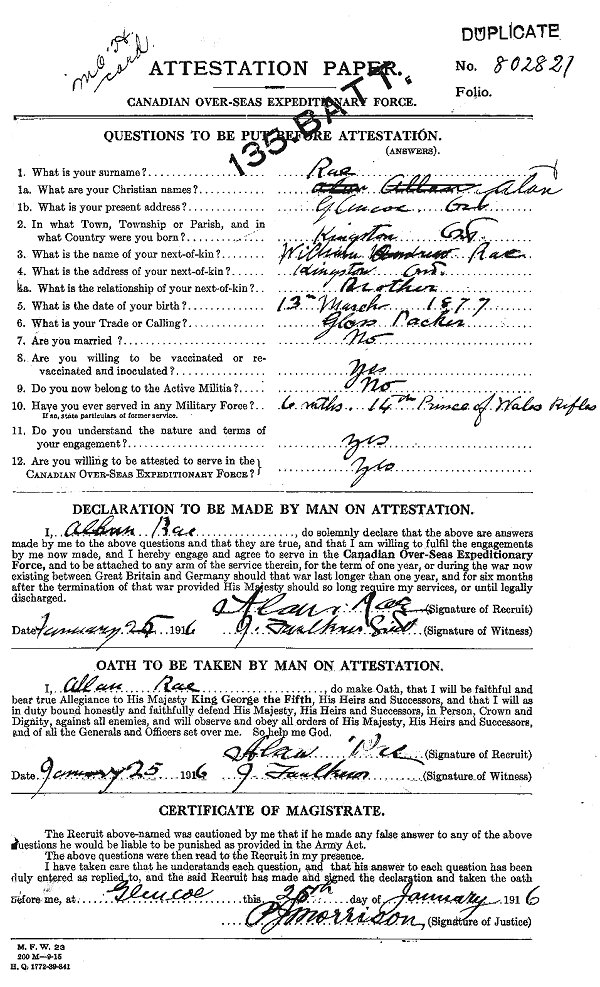 DUPLICATE
M.O. H.
card.
ATTESTATION PAPER.
No. 802821
Folio.
CANADIAN OVER-SEAS EXPEDITIONARY FORCE.
135. BATT.
QUESTIONS TO BE PUT BEFORE ATTESTATION.
(ANSWERS).
1. What is your surname? Rae
1a. What are your Christian names? Alan Allan Alan
1b. What is your present address? Glencoe Ont
2. In what Town, Township or Parish, and in
what Country were you born? Kingston Ont.
3. What is the name of your next-of-kin? William Andrew Rae
4. What is the address of your next-of-kin? Kingston Ont.
4a. What is the relationship of your next-of-kin? Brother
5. What is the date of your birth? 13th March 1877
6. What is your Trade or Calling? Glass Packer
7. Are you married ? No
8. Are you willing to be vaccinated or re-
vaccinated and inoculated? Yes
9. Do you now belong to the Active Militia? No
10. Have you ever served in any Military Force? 6 mths. 14th Prince of Wales Rifles
If so, state particulars of former service.
11. Do you understand the nature and terms of
your engagement? yes
12. Are you willing to be attested to serve in the
CANADIAN OVER-SEAS EXPEDITIONARY FORCE? Yes
DECLARATION TO BE MADE BY MAN ON ATTESTATION.
I, Allan Rae, do solemnly declare that the above are answers
made by me to the above questions and that they are true, and that I am willing to fulfil the engagements
by me now made, and I hereby engage and agree to serve in the Canadian Over-Seas Expeditionary
Force, and to be attached to any arm of the service therein, for the term of one year, or during the war now
existing between Great Britain and Germany should that war last longer than one year, and for six months
after the termination of that war provided His Majesty should so long require my services, or until legally
discharged.
Alan Rae (Signature of Recruit)
Date January 25 1916 J. Faulkner (Signature of Witness)
OATH TO BE TAKEN BY MAN ON ATTESTATION.
I, Allan Rae, do make Oath, that I will be faithful and
bear true Allegiance to His Majesty King George the Fifth, His Heirs and Successors, and that I will as
in duty bound honestly and faithfully defend His Majesty, His Heirs and Successors, in Person, Crown and
Dignity, against all enemies, and will observe and obey all orders of His Majesty, His Heirs and Successors,
and of all the Generals and Officers set over me. So help me God.
Alan Rae (Signature of Recruit)
Date January 25 1916 J Faulkner (Signature of Witness)
CERTIFICATE OF MAGISTRATE.
The Recruit above-named was cautioned by me that if he made any false answer to any of the above
questions he would be liable to be punished as provided in the Army Act.
The above questions were then read to the Recruit in my presence.
I have taken care that he understands each question, and that his answer to each question has been
duly entered as replied to, and the said Recruit has made and signed the declaration and taken the oath
before me, at Glencoe this 25th day of January 1916
PJ Morrison, (Signature of Justice)
M. F. W. 23
200 M—9-15
H. Q. 1772-39-841